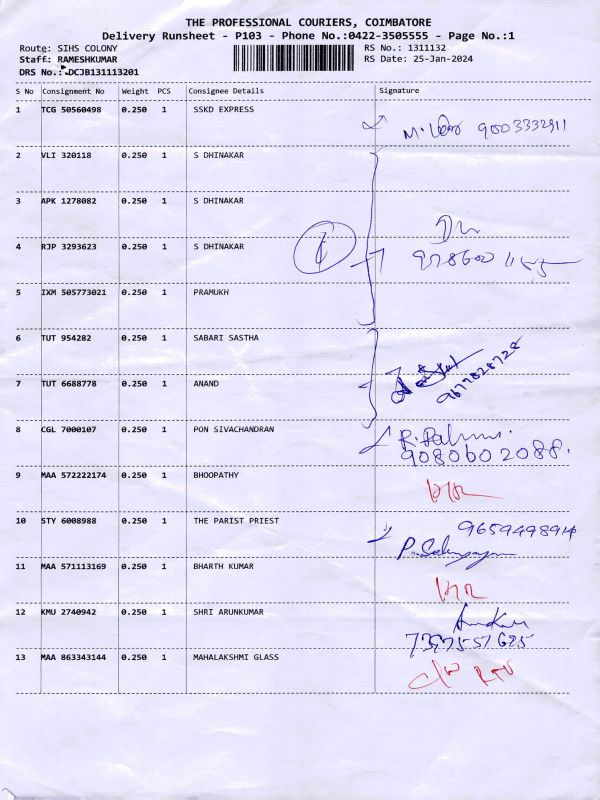 THE PROFESSIONAL COURIERS, COIMBATORE
Delivery Runsheet - P103 - Phone No.:0422-3505555 - Page No.:1
Route: SIHS COLONY RS No.: 1311132
Staff: RAMESHKUMAR RS Date: 25-Jan-2024
DRS No.: DCJB131113201
S No Consignment No Weight PCS Consignee Details Signature
1 TCG 50560498 0.250 1 SSKD EXPRESS
9003332911
2 VLI 320118 0.250 1 S DHINAKAR
3 APK 1278082 0.250 1 S DHINAKAR
4 RJP 3293623 0.250 1 S DHINAKAR
5 IXM 505773021 0.250 1 PRAMUKH
6 TUT 954282 0.250 1 SABARI SASTHA
9677828728
7 TUT 6688778 0.250 1 ANAND
8 CGL 7000107 0.250 1 PON SIVACHANDRAN
9080602088.
9 MAA 572222174 0.250 1 BHOOPATHY
10 STY 6008988 0.250 1 THE PARIST PRIEST
9659498914
11 MAA 571113169 0.250 1 BHARTH KUMAR
12 KMU 2740942 0.250 1 SHRI ARUNKUMAR
7397557625
13 MAA 863343144 0.250 1 MAHALAKSHMI GLASS